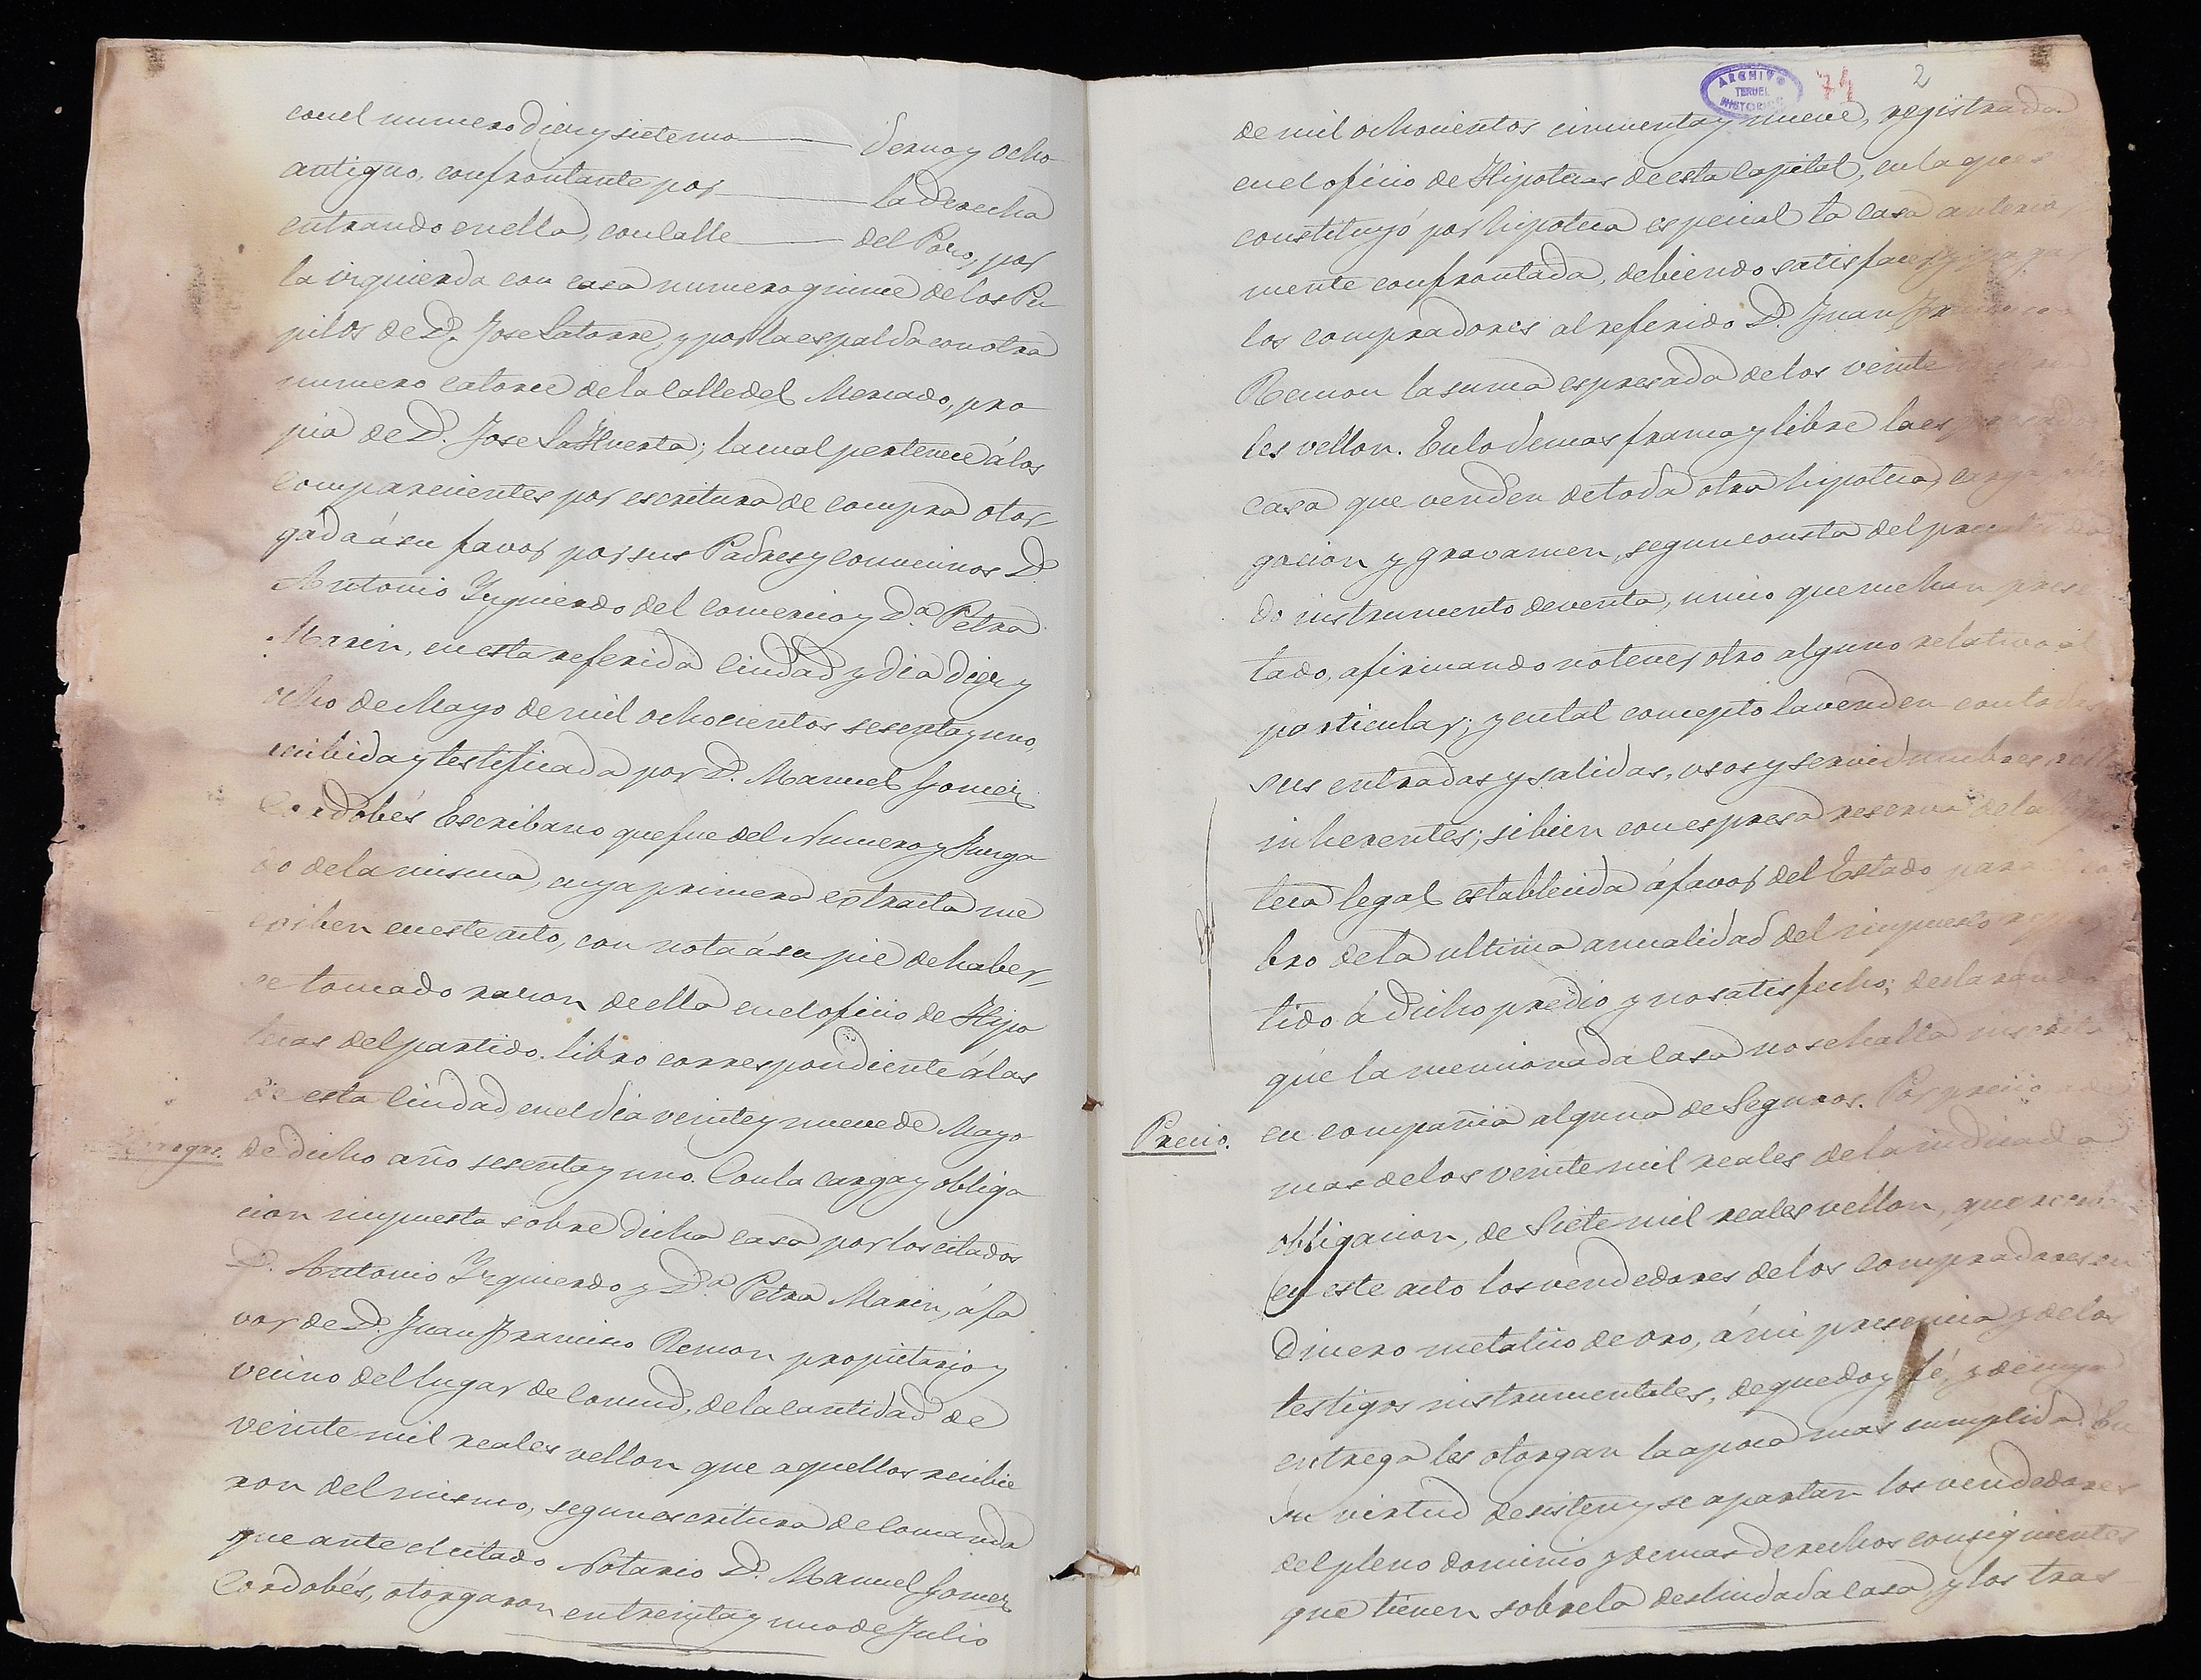 con el numero diez y siete mo——derno y ocho
antiguo, confrontante por——la derecha
entrando en ella, con calle——del Pozo, por
la izquierda con casa numero quince de los Pu
pilos de D. Jose Latorre, y por la espalda con otra
numero catorce de la Calle del Mercado, pro
pia de D. Jose La Huerta; la cual pertenece á los
comparecientes por escritura de compra otor-
gada á su favor por sus Padres y convecinos D.
Antonio Yzquierdo del comercio y D.ª Petra
Marin, en esta referida Ciudad y dia diez y
ocho de Mayo de mil ochocientos sesenta y uno,
recibida y testificada por D. Manuel Gomez
Cordobés Escribano que fue del Numero y Juzga
do de la misma, cuya primera extracta me
exiben en este acto, con nota á su pie de haber-
se tomado razon de ella en el oficio de Hipo
tecas del partido, libro correspondiente á las
de esta Ciudad en el dia veinte y nueve de Mayo
Cargas.
de dicho año sesenta y uno. Con la carga y obliga
cion impuesta sobre dicha casa por los citados
D. Antonio Yzquierdo y D.ª Petra Marin, á fa
vor de D. Juan Francisco Remon propietario y
vecino del lugar de Comud, de la cantidad de
veinte mil reales vellon que aquellos recibie
ron del mismo, segun escritura de Comanda
que ante el citado Notario D. Manuel Gomez
Cordobés, otorgaron en treinta y uno de Julio
ARCHIVO
TERUEL
HISTORICO
74
2
de mil ochocientos cincuenta y nueve, registrada
en el oficio de Hipotecas de esta Capital, en la que se
constituyó por hipoteca especial la casa anterior
mente confrontada, debiendo satisfacer y pagar
los compradores al referido D. Juan Francisco
Remon la suma espresada de los veinte mil rea
les vellon. En lo demas franca y libre la espresada
casa que venden de toda otra hipoteca, carga, obli
gacion y gravamen, segun consta del precalenda
do instrumento de venta, unico que me han presen
tado, afirmando no tener otro alguno relativo al
particular; y en tal concepto la venden con todas
sus entradas y salidas, usos y servidumbres
inherentes; si bien con espresa reserva de la hipo
teca legal establecida á favor del Estado para el co
bro de la ultima anualidad del impuesto repar
tido á dicho predio y no satisfecho; declarando
que la mencionada casa no se halla inscrita
Precio.
en compañia alguna de Seguros. Por precio ade
mas de los veinte mil reales de la indicada
obligacion, de Siete mil reales vellon, que reciben
en este acto los vendedores de los compradores en
dinero metalico de oro, á mi presencia y de los
testigos instrumentales, de que doy fé, y de cuya
entrega les otorgan la apoca mas cumplida. En
su virtud desisten y se apartan los vendedores
del pleno dominio y demas derechos consiguientes
que tienen sobre la deslindada casa, y los tras